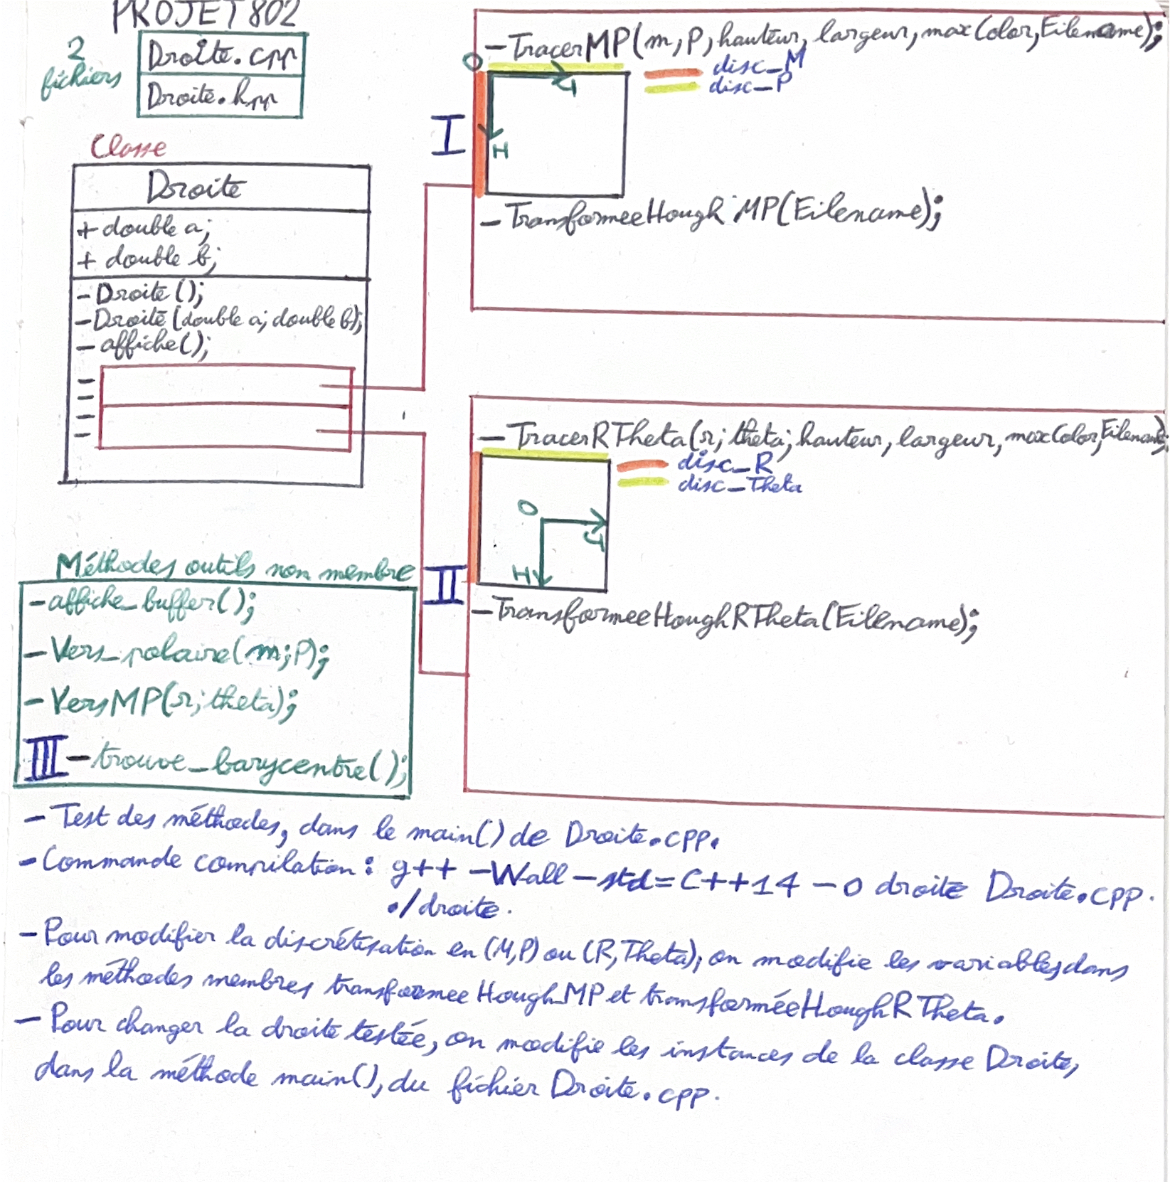 PROJET 802
2
fichiers
Droite.cpp
Droite.hpp
Classe
Droite
+ double a;
+ double b;
- Droite();
- Droite(double a; double b);
- affiche();
I
- TracerMP(m, P, hauteur, largeur, maxColor, Filename);
disc_M
disc_P
O
H
- TransformeeHoughMP(Filename);
II
- TracerRTheta(r; theta; hauteur, largeur, maxColor, Filename);
disc_R
disc_Theta
O
H
- TransformeeHoughRTheta(Filename);
Méthodes outils non membre
- affiche_buffer();
- Vers_polaire(m; P);
- VersMP(r; theta);
III - trouve_barycentre();
- Test des méthodes, dans le main() de Droite.cpp.
- Commande compilation : g++ -Wall -std=C++14 -o droite Droite.cpp.
./droite.
- Pour modifier la discrétisation en (M,P) ou (R,Theta); on modifie les variables dans
les méthodes membres transformee Hough_MP et transforméeHoughRTheta.
- Pour changer la droite testée, on modifie les instances de la classe Droite,
dans la méthode main(), du fichier Droite.cpp.